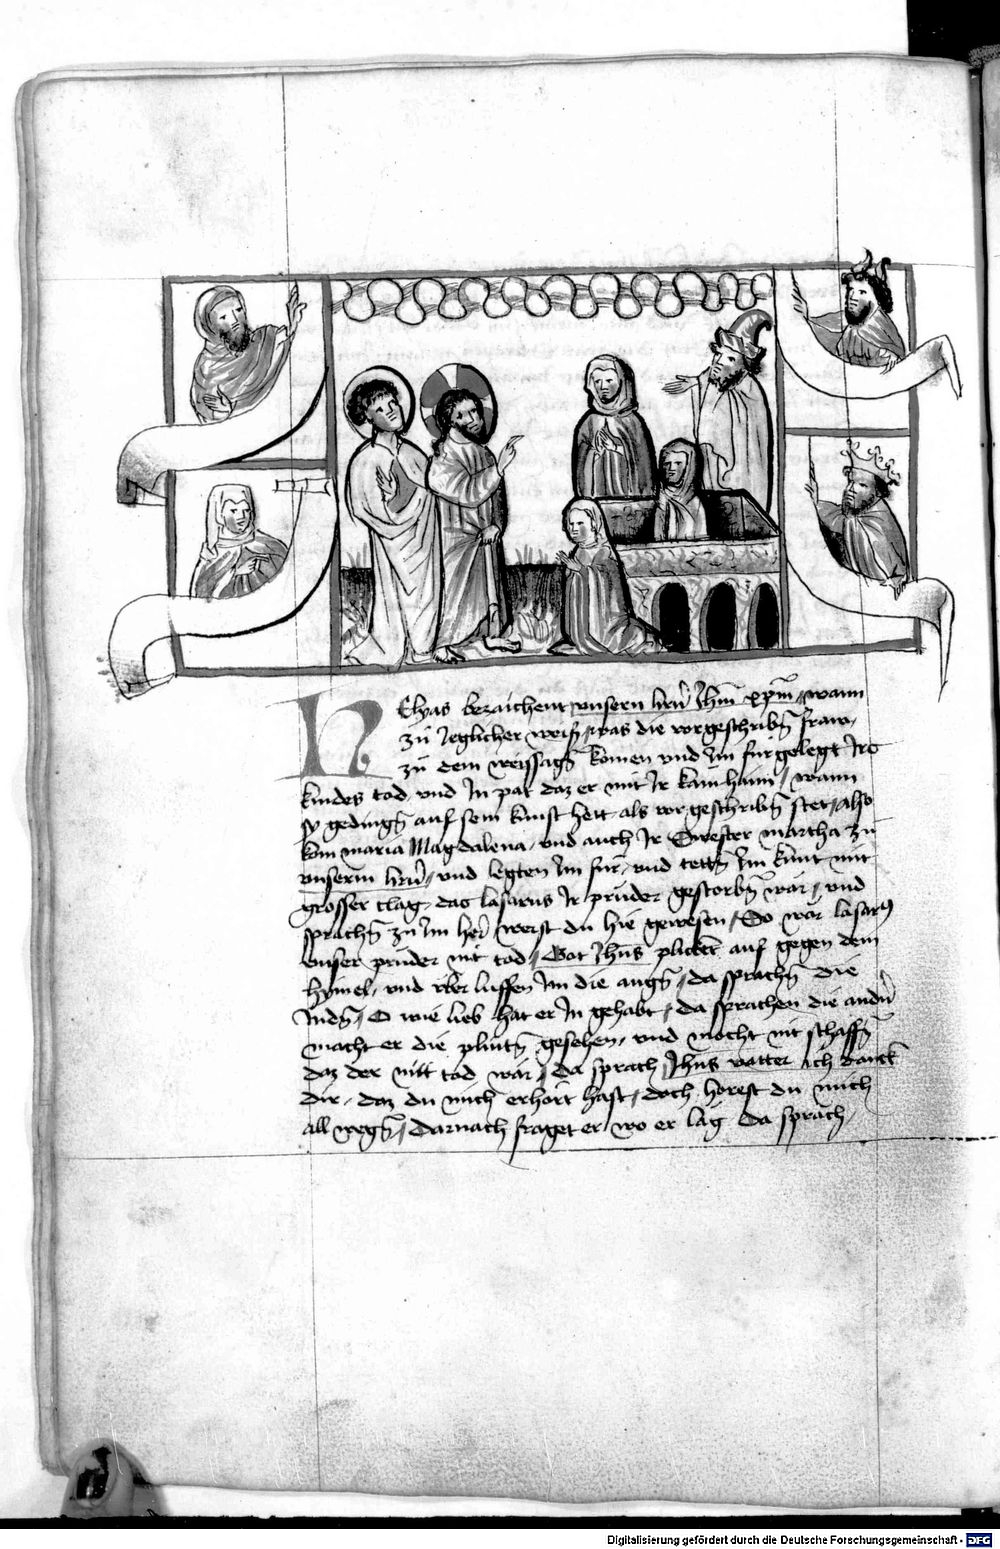 Helyas bezaichent unsern hrn Jhm xpm / wann
zu Jeglicher weiß / was die vorgeschribn fraw /
zu dem weissagn komen und Im fürgelegt Irs
kindes tod / und In pat daz er mit Ir kam haim / wann
sy gedingn auf sein kunst hett als vorgeschribn stet / also
kom maria Magdalena / und auch Ir Swester martha zu
unserm hrn / und legten Im für / und tettn Im kunt mit
grosser clag / das lasarus Ir prüder gestorbn wär / und
sprachn zu Im her werst du hie gewesen / So wär lasarus
unser prüder nit tod / Got Jhus plicket auf gegen dem
hymel / und über luffen Im die augn / da sprachn die
Judn / O wie lieb hat er In gehabt / da sprachen die andn
macht er die plintn gesehen / und mocht nit schaffn
daz der nitt tod wär / Da sprach Jhus vatter ich danck
dir / daz du mich erhört hast / doch hörest du mich
all wegn / Darnach fraget er wo er läg Da sprach /
Digitalisierung gefördert durch die Deutsche Forschungsgemeinschaft - DFG